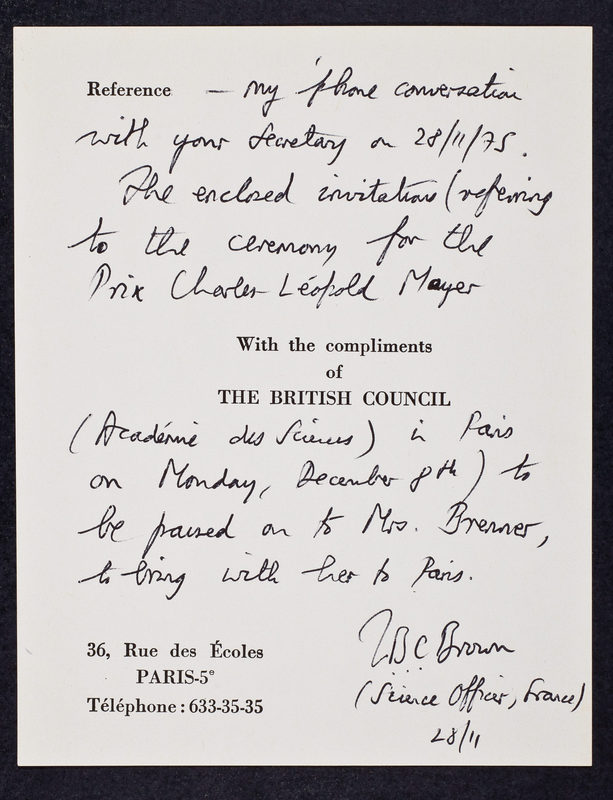 Reference — my 'phone conversation
with your Secretary on 28/11/75.
The enclosed invitation (referring
to the ceremony for the
Prix Charles-Léopold Mayer
With the compliments
of
THE BRITISH COUNCIL
(Académie des Sciences) in Paris
on Monday, December 8th) to
be passed on to Mrs. Brenner,
to bring with her to Paris.
36, Rue des Écoles
PARIS-5e
Téléphone : 633-35-35
BC Brown
(Science Officer, France)
28/11